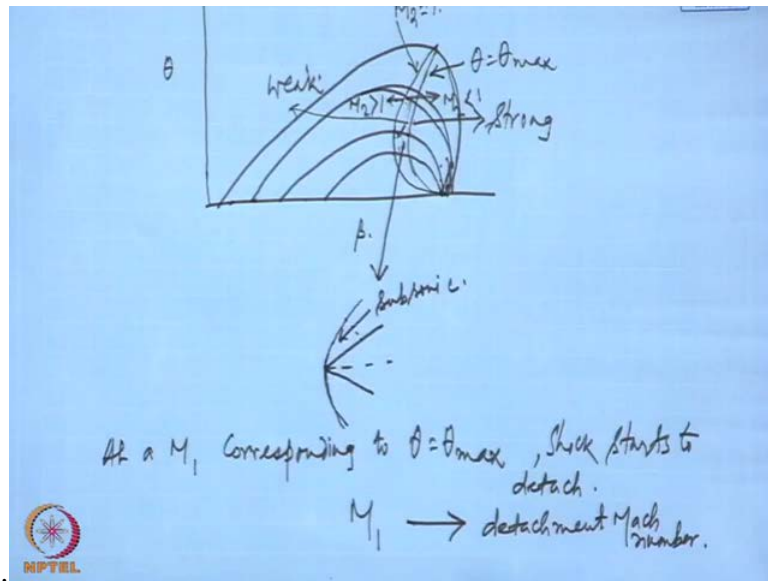 M₂=1.
θ
θ=θmax
weak.
M₂>1
M₂<1
Strong
β.
Subsonic.
At a M₁ corresponding to θ=θmax, Shock starts to
detach.
M₁ → detachment Mach
number.
NPTEL